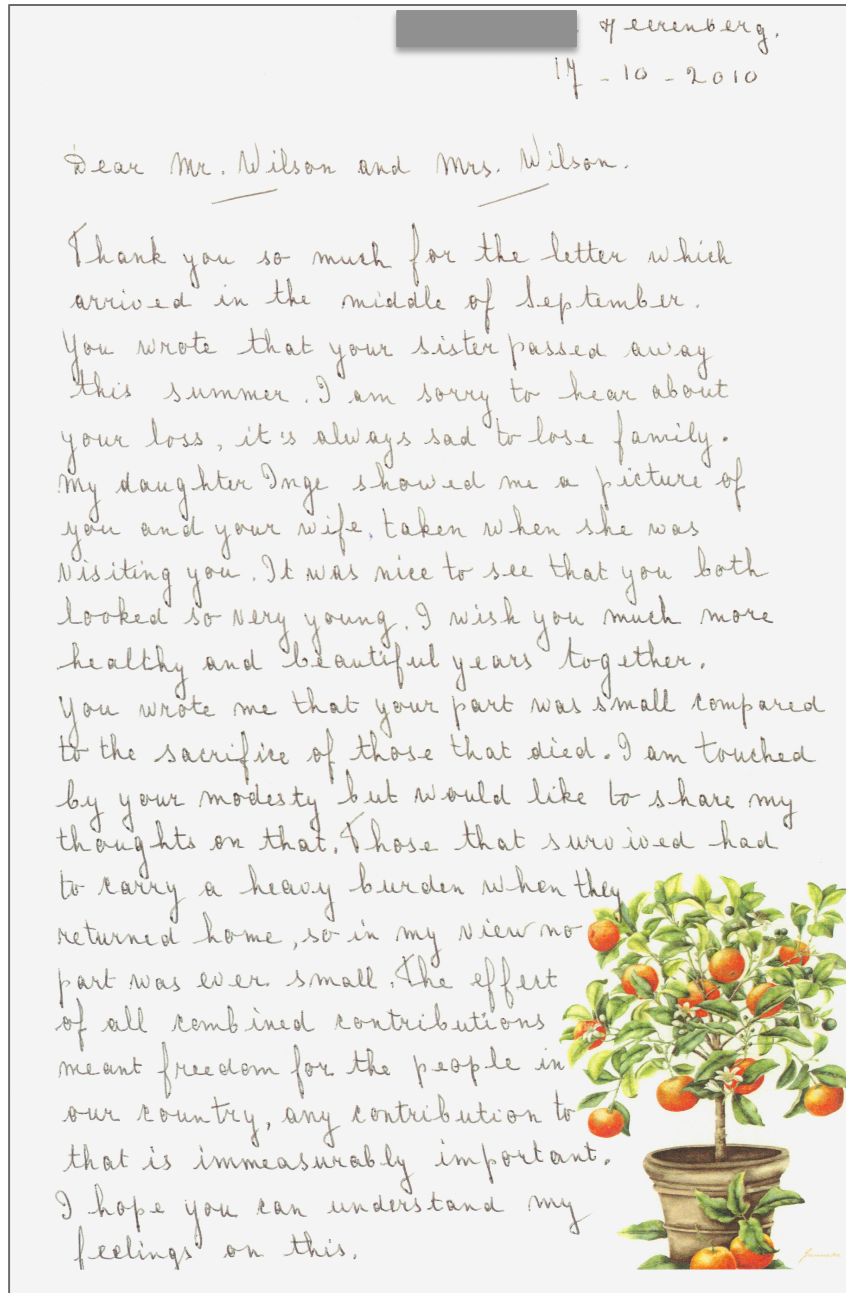 Heerenberg.
17-10-2010
Dear Mr. Wilson and Mrs. Wilson.
Thank you so much for the letter which
arrived in the middle of September.
You wrote that your sister passed away
this summer. I am sorry to hear about
your loss, it's always sad to lose family.
My daughter Inge showed me a picture of
you and your wife, taken when she was
visiting you. It was nice to see that you both
looked so very young. I wish you much more
healthy and beautiful years together.
You wrote me that your part was small compared
to the sacrifice of those that died. I am touched
by your modesty but would like to share my
thoughts on that. Those that survived had
to carry a heavy burden when they
returned home, so in my view no
part was ever small. The effert
of all combined contributions
meant freedom for the people in
our country, any contribution to
that is immeasurably important.
I hope you can understand my
feelings on this.